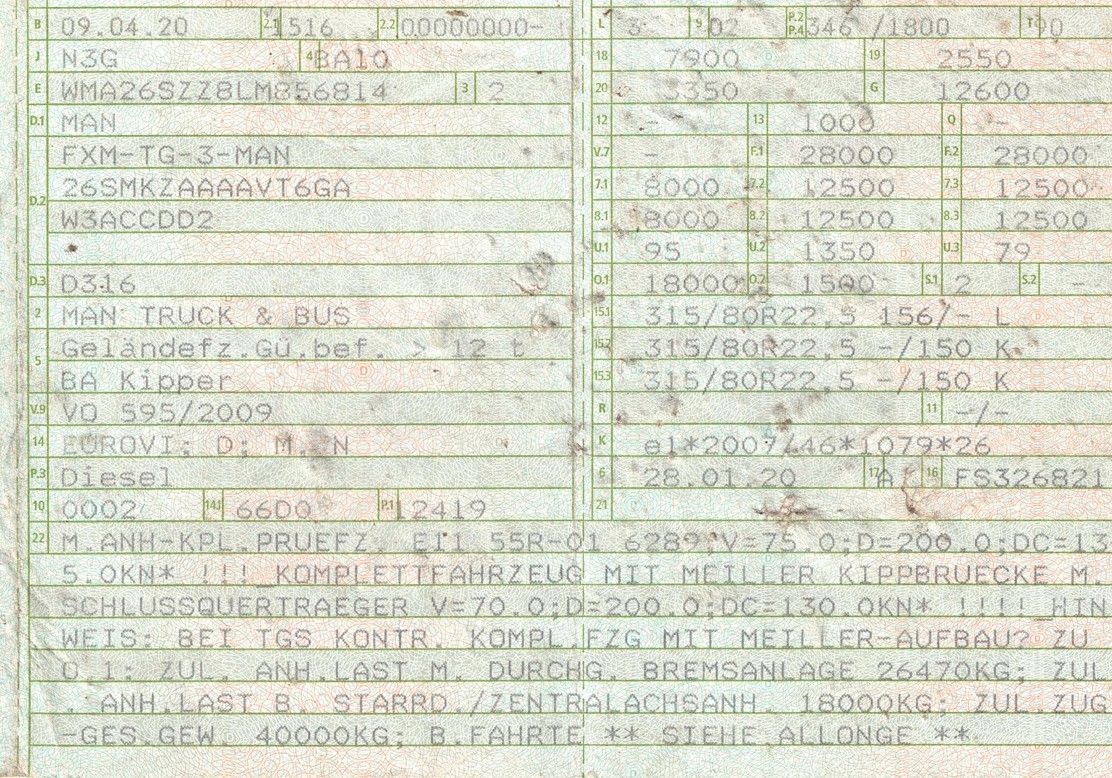 B 09.04.20 2.1 1516 2.2 00000000- L 3 9 02 P.2 P.4 346 /1800 T 90
J N3G 4 BA10 18 7900 19 2550
E WMA26SZZ8LM856814 3 2 20 3350 G 12600
D.1 MAN 12 - 13 1000 Q -
FXM-TG-3-MAN V.7 - F.1 28000 F.2 28000
D.2 26SMKZAAAAVT6GA 7.1 8000 7.2 12500 7.3 12500
W3ACCDD2 8.1 8000 8.2 12500 8.3 12500
U.1 95 U.2 1350 U.3 79
D.3 D316 O.1 18000 O.2 1500 S.1 2 S.2 -
2 MAN TRUCK & BUS 15.1 315/80R22.5 156/- L
5 Geländefz.Gü.bef. > 12 t 15.2 315/80R22.5 -/150 K
BA Kipper 15.3 315/80R22.5 -/150 K
V.9 VO 595/2009 R 11 -/-
14 EUROVI; D; M, N K e1*2007/46*1079*26
P.3 Diesel 6 28.01.20 17 A 16 FS326821
10 0002 14.1 66D0 P.1 12419 21
22 M.ANH-KPL.PRUEFZ. E11 55R-01 6289;V=75.0;D=200.0;DC=13
5.0KN* !!! KOMPLETTFAHRZEUG MIT MEILLER KIPPBRUECKE M.
SCHLUSSQUERTRAEGER V=70.0;D=200.0;DC=130.0KN* !!!! HIN
WEIS: BEI TGS KONTR. KOMPL.FZG MIT MEILLER-AUFBAU? ZU
O.1: ZUL. ANH.LAST M. DURCHG. BREMSANLAGE 26470KG; ZUL
. ANH.LAST B. STARRD./ZENTRALACHSANH. 18000KG; ZUL.ZUG
-GES.GEW. 40000KG; B.FAHRTE ** SIEHE ALLONGE **